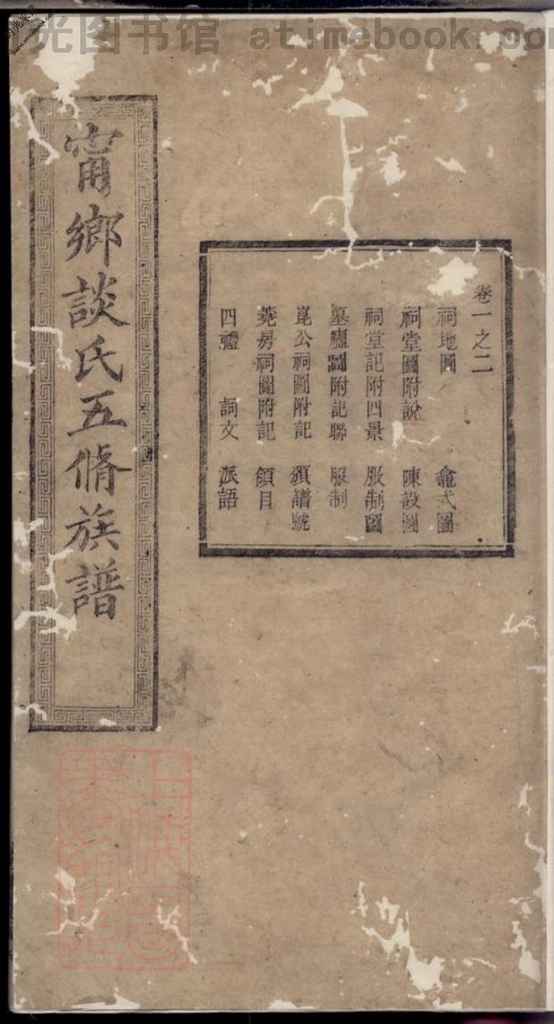 光图书馆 atimebook.com
甯鄉談氏五脩族譜
卷一之二
祠地圖 龕式圖
祠堂圖附說 陳設圖
祠堂記附四景 服制圖
墓廬圖附記聯 服制
崑公祠圖附記 領譜號
堯房祠圖附記 領目
四禮 詞文 派語